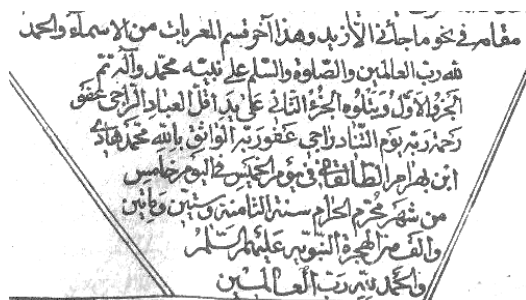 مقامه في نحو ما جائني الا زيد وهذا آخر قسم المعربات من الاسماء والحمد
لله رب العالمين والصلوة والسلم على نبيه محمد وآله تم
الجزؤ الاول ويتلوه الجزؤ الثاني على يد اقل العباد الراجي
رحمة ربه يوم التناد راجي عفو ربه الواثق بالله محمد هادي
ابن بهرام الطالقاني في يوم الخميس في اليوم خامس
من شهر محرم الحرام سنة الثامنة وستين ومأتين
والف من الهجرة النبويه عليه السلم
والحمد لله رب العالمين